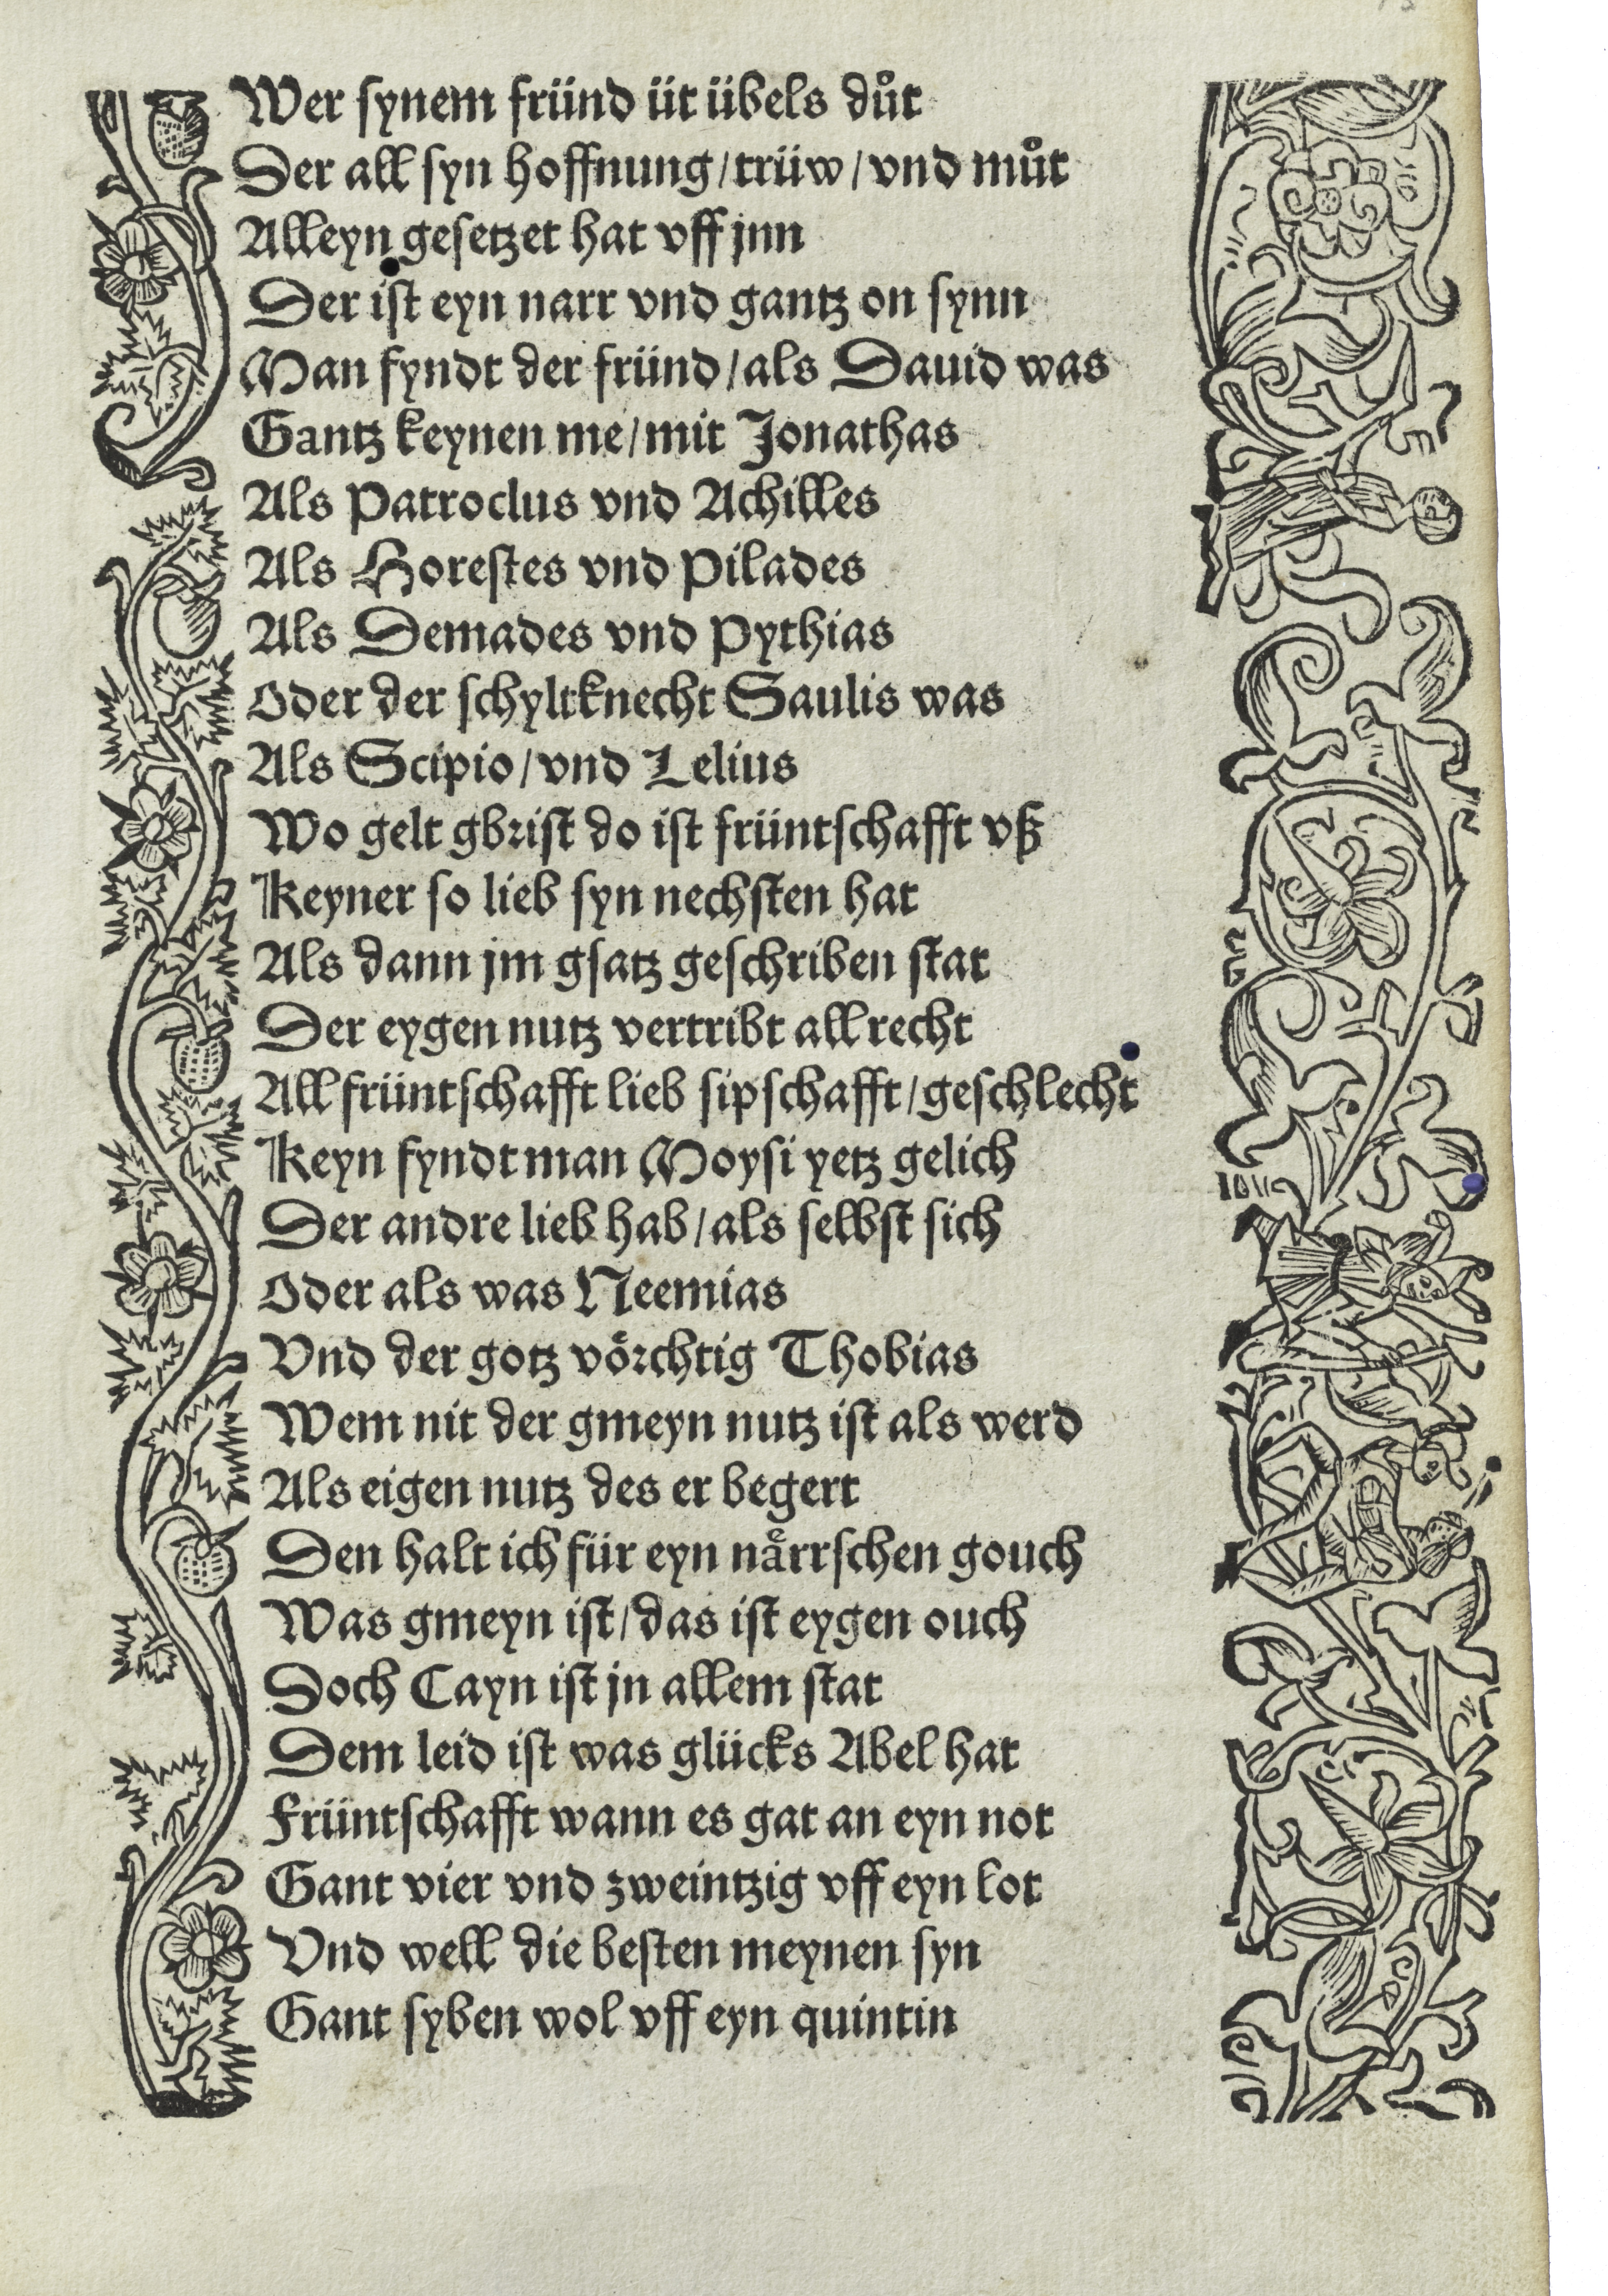 Wer synem fründ üt übels důt
Der all syn hoffnung/trüw/vnd můt
Alleyn gesetzet hat vff jnn
Der ist eyn narr vnd gantz on synn
Man fyndt der fründ/als Dauid was
Gantz keynen me/mit Jonathas
Als Patroclus vnd Achilles
Als Horestes vnd Pilades
Als Demades vnd Pythias
Oder der schyltknecht Saulis was
Als Scipio/vnd Lelius
Wo gelt gbrist do ist früntschafft vß
Keyner so lieb syn nechsten hat
Als dann jm gsatz geschriben stat
Der eygen nutz vertribt all recht
All früntschafft lieb sipschafft/geschlecht
Keyn fyndt man Moysi yetz gelich
Der andre lieb hab/als selbst sich
Oder als was Neemias
Vnd der gotz voͤrchtig Thobias
Wem nit der gmeyn nutz ist als werd
Als eigen nutz des er begert
Den halt ich für eyn naͤrrschen gouch
Was gmeyn ist/das ist eygen ouch
Doch Cayn ist jn allem stat
Dem leid ist was glücks Abel hat
Früntschafft wann es gat an eyn not
Gant vier vnd zweintzig vff eyn lot
Vnd well die besten meynen syn
Gant syben wol vff eyn quintin